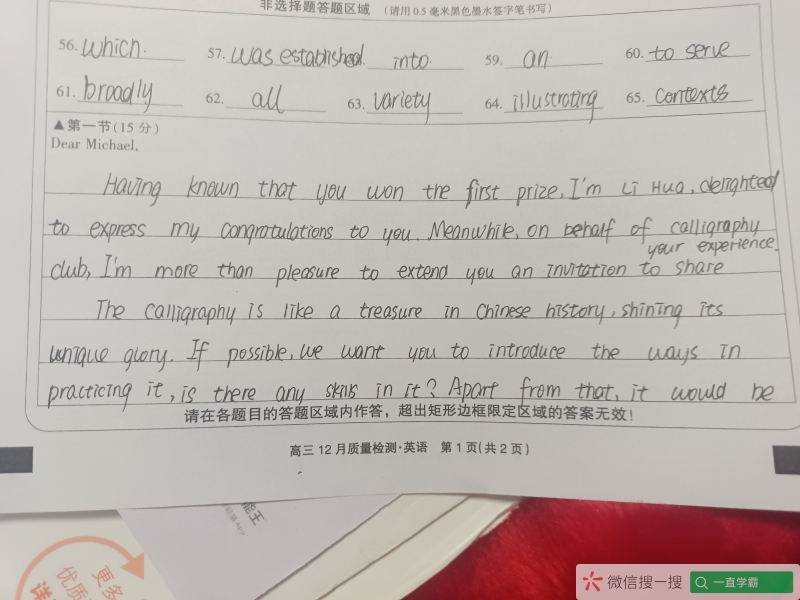 非选择题答题区域 (请用0.5毫米黑色墨水签字笔书写)
56. which. 57. was established. into. 59. an 60. to serve
61. broadly 62. all 63. variety 64. illustrating 65. contexts
▲第一节(15分)
Dear Michael,
Having known that you won the first prize, I'm Li Hua, delighted
to express my congratulations to you. Meanwhile, on behalf of calligraphy
your experience.
club, I'm more than pleasure to extend you an invitation to share
The calligraphy is like a treasure in Chinese history, shining its
unique glory. If possible, we want you to introduce the ways in
practicing it, is there any skills in it? Apart from that, it would be
请在各题目的答题区域内作答，超出矩形边框限定区域的答案无效！
高三12月质量检测·英语 第1页(共2页)
能王
更多
优质
详
微信搜一搜
一直学霸